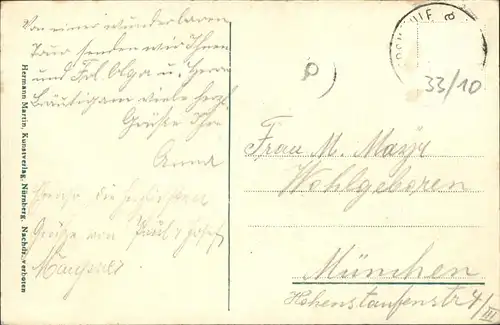 Von einer wunderbaren
Tour senden wir Ihnen
und Frl. Olga u. Herrn
Bräutigam viele herzl.
Grüße Ihre
Anna
die herzlichsten
Grüße von Paul & Josef
Hermann Martin, Kunstverlag, Nürnberg. Nachdr. verboten
33/10
Frau M. Mayr
Wohlgeboren
München
Hohenstaufenstr 4/III